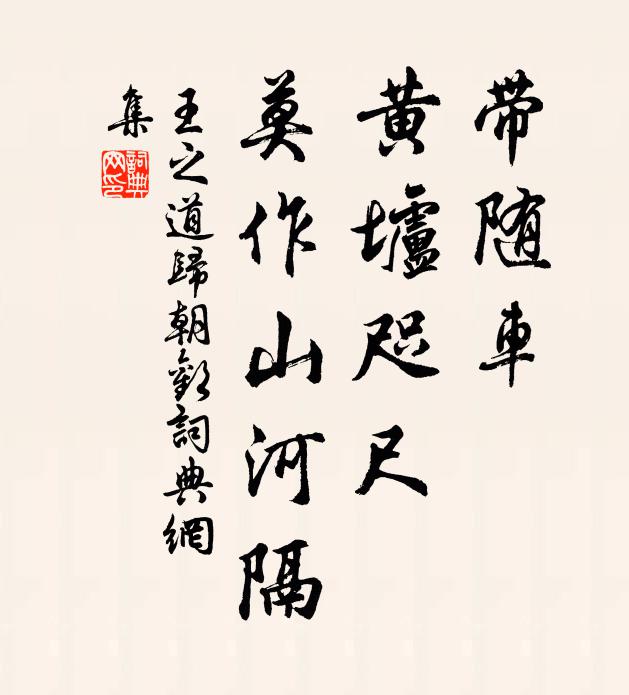 带随車
黄壚咫尺
莫作山河隔
王之道歸朝歡詞典網
集
詞典
网印